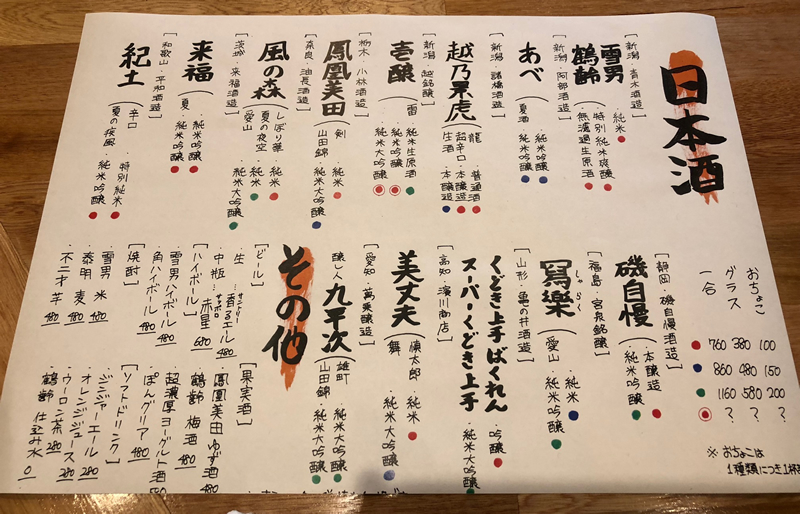 日本酒
[新潟・青木酒造]
雪男
・純米
鶴齢
・特別純米爽醸
・無濾過生原酒
[新潟・阿部酒造]
あべ
・純米吟醸
夏酒・純米吟醸
[新潟・諸橋酒造]
越乃景虎
龍・普通酒
超辛口・本醸造
生酒・本醸造
[新潟・越銘醸]
壱醸
雷・純米生原酒
・純米吟醸
・純米大吟醸
[栃木・小林酒造]
鳳凰美田
剣・純米
山田錦・純米大吟醸
[奈良・油長酒造]
風の森
しぼり華・純米
夏の夜空・純米
愛山・純米大吟醸
[茨城・来福酒造]
来福
・純米吟醸
夏・純米吟醸
[和歌山・平和酒造]
紀土
辛口・特別純米
夏の疾風・純米吟醸
おちょこ
グラス
一合
760 380 100
860 480 150
1160 580 200
? ? ?
※おちょこは
1種類につき1杯
[静岡・磯自慢酒造]
磯自慢
・本醸造
・純米吟醸
[福島・宮泉銘醸]
寫樂
しゃらく
・純米
愛山・純米吟醸
[山形・亀の井酒造]
くどき上手ばくれん
・吟醸
スーパーくどき上手
・純米大吟醸
[高知・濵川商店]
美丈夫
慎太郎・純米
舞・純米大吟醸
[愛知・萬乗醸造]
醸し人九平次
雄町・純米大吟醸
山田錦・純米大吟醸
その他
[ビール]
・生…香るエール 480
サントリー
・中瓶…赤星 680
サッポロ
[ハイボール]
・雪男ハイボール 480
・角ハイボール 480
[焼酎]
・雪男 米 480
・泰明 麦 480
・不二才 芋 480
[果実酒]
・鳳凰美田ゆず酒 480
・鶴齢 梅酒 480
・超濃厚ヨーグルト酒
・ぽんグリア 480
[ソフトドリンク]
・ジンジャーエール 280
・オレンジジュース 280
・ウーロン茶 280
・鶴齢 仕込み水 0